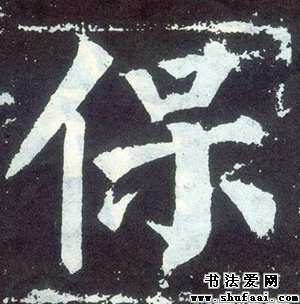 保
书法爱网
www.shufaai.com